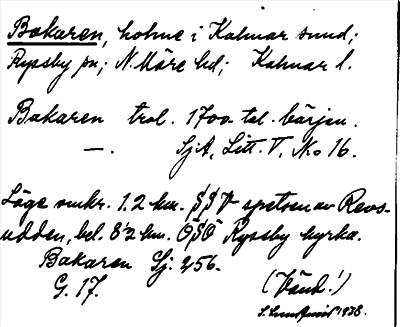 Bakaren, holme i Kalmar sund;
Ryssby sn; N. Möre hd; Kalmar l.
Bakaren trol. 1700-tal. början.
—. SjA, Litt. T, No 16.
Läge omkr. 1.2 km. S§V spetsen av Revs-
udden, bel. 8½ km. ÖSÖ Ryssby kyrka.
Bakaren Sj. 256.
G. 17. (Vänd!)
1938.